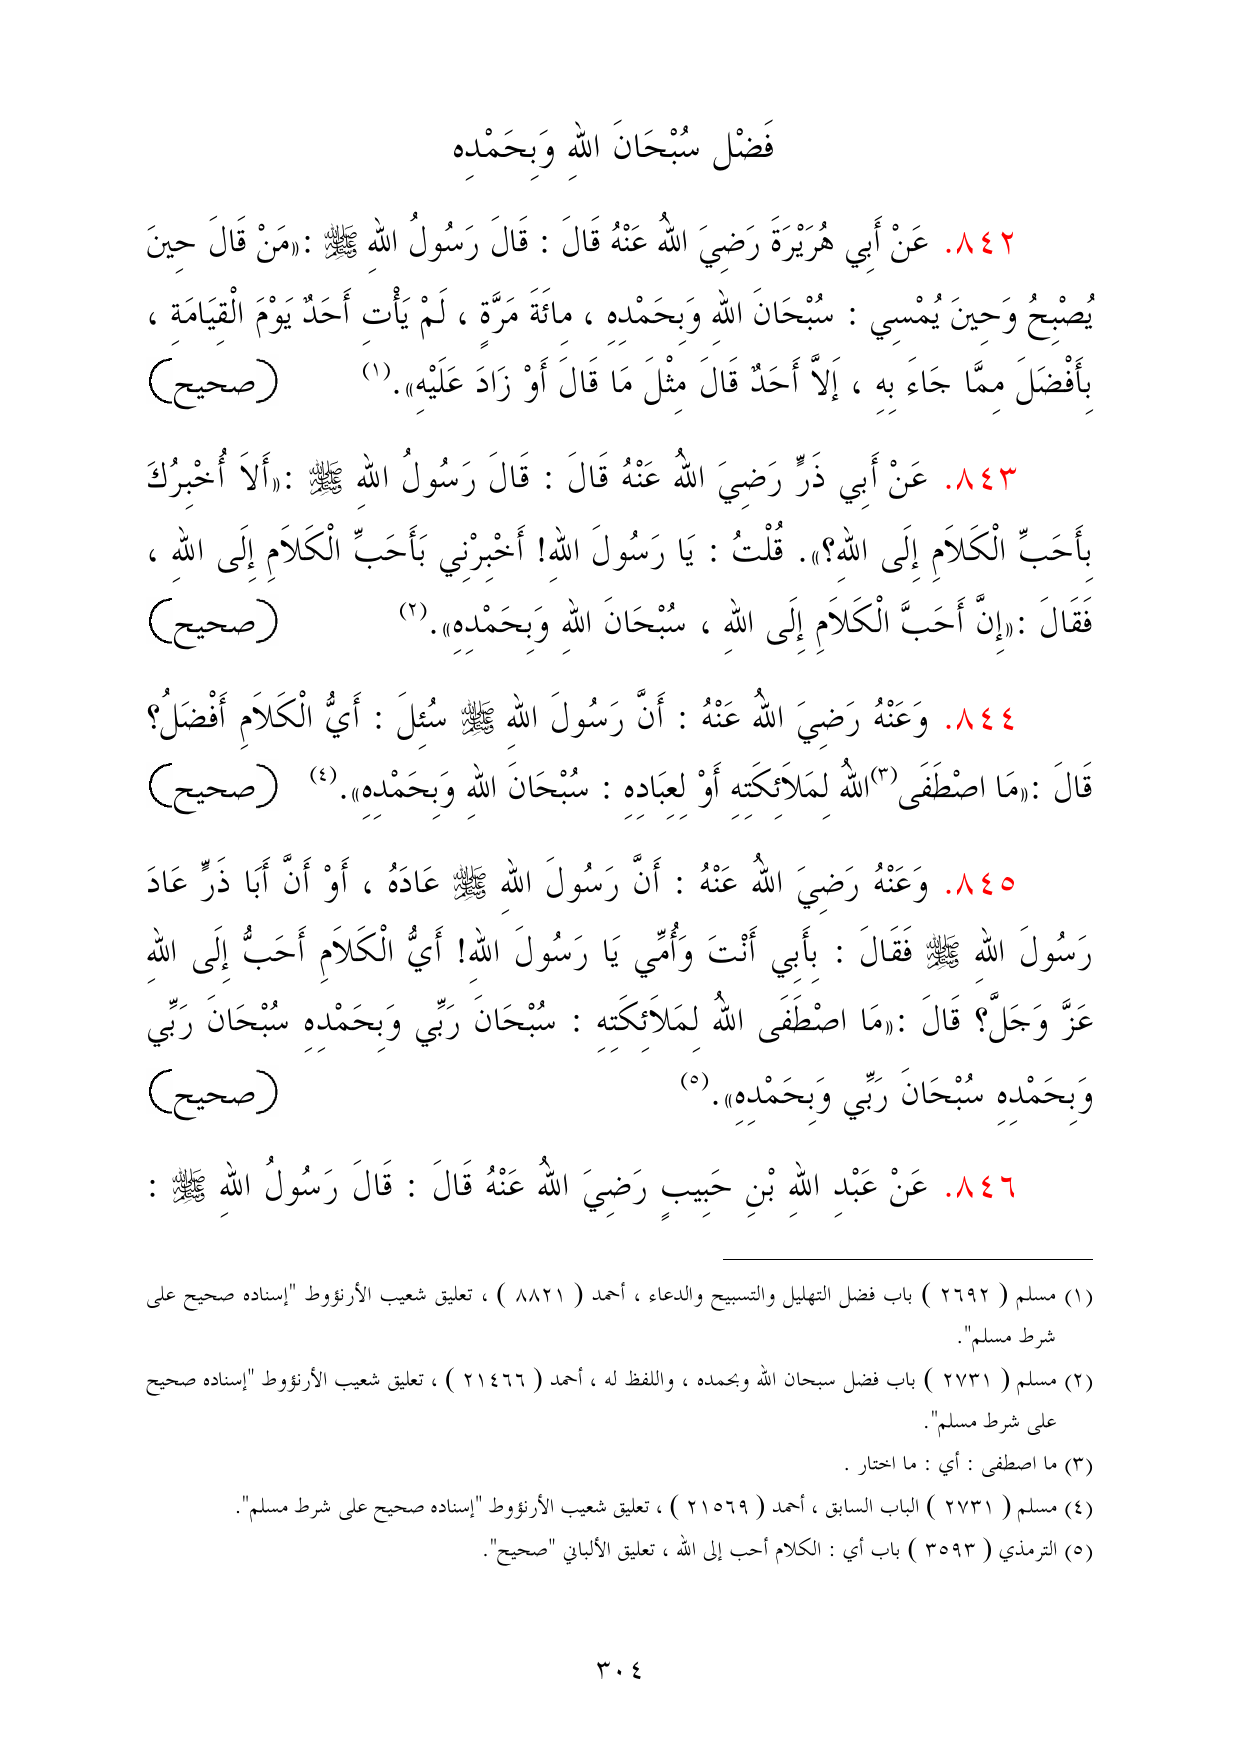 فَضْل سُبْحَانَ اللهِ وَبِحَمْدِه
٨٤٢. عَنْ أَبِي هُرَيْرَةَ رَضِيَ اللهُ عَنْهُ قَالَ : قَالَ رَسُولُ اللهِ ﷺ :«مَنْ قَالَ حِينَ
يُصْبِحُ وَحِينَ يُمْسِي : سُبْحَانَ اللهِ وَبِحَمْدِهِ ، مِائَةَ مَرَّةٍ ، لَمْ يَأْتِ أَحَدٌ يَوْمَ الْقِيَامَةِ ،
بِأَفْضَلَ مِمَّا جَاءَ بِهِ ، إِلاَّ أَحَدٌ قَالَ مِثْلَ مَا قَالَ أَوْ زَادَ عَلَيْهِ».(١) (صحيح)
٨٤٣. عَنْ أَبِي ذَرٍّ رَضِيَ اللهُ عَنْهُ قَالَ : قَالَ رَسُولُ اللهِ ﷺ :«أَلاَ أُخْبِرُكَ
بِأَحَبِّ الْكَلاَمِ إِلَى اللهِ؟». قُلْتُ : يَا رَسُولَ اللهِ! أَخْبِرْنِي بَأَحَبِّ الْكَلاَمِ إِلَى اللهِ ،
فَقَالَ :«إِنَّ أَحَبَّ الْكَلاَمِ إِلَى اللهِ ، سُبْحَانَ اللهِ وَبِحَمْدِهِ».(٢) (صحيح)
٨٤٤. وَعَنْهُ رَضِيَ اللهُ عَنْهُ : أَنَّ رَسُولَ اللهِ ﷺ سُئِلَ : أَيُّ الْكَلاَمِ أَفْضَلُ؟
قَالَ :«مَا اصْطَفَى(٣)اللهُ لِمَلاَئِكَتِهِ أَوْ لِعِبَادِهِ : سُبْحَانَ اللهِ وَبِحَمْدِهِ».(٤) (صحيح)
٨٤٥. وَعَنْهُ رَضِيَ اللهُ عَنْهُ : أَنَّ رَسُولَ اللهِ ﷺ عَادَهُ ، أَوْ أَنَّ أَبَا ذَرٍّ عَادَ
رَسُولَ اللهِ ﷺ فَقَالَ : بِأَبِي أَنْتَ وَأُمِّي يَا رَسُولَ اللهِ! أَيُّ الْكَلاَمِ أَحَبُّ إِلَى اللهِ
عَزَّ وَجَلَّ؟ قَالَ :«مَا اصْطَفَى اللهُ لِمَلاَئِكَتِهِ : سُبْحَانَ رَبِّي وَبِحَمْدِهِ سُبْحَانَ رَبِّي
وَبِحَمْدِهِ سُبْحَانَ رَبِّي وَبِحَمْدِهِ».(٥) (صحيح)
٨٤٦. عَنْ عَبْدِ اللهِ بْنِ حَبِيبٍ رَضِيَ اللهُ عَنْهُ قَالَ : قَالَ رَسُولُ اللهِ ﷺ :
(١) مسلم ( ٢٦٩٢ ) باب فضل التهليل والتسبيح والدعاء ، أحمد ( ٨٨٢١ ) ، تعليق شعيب الأرنؤوط "إسناده صحيح على
شرط مسلم".
(٢) مسلم ( ٢٧٣١ ) باب فضل سبحان الله وبحمده ، واللفظ له ، أحمد ( ٢١٤٦٦ ) ، تعليق شعيب الأرنؤوط "إسناده صحيح
على شرط مسلم".
(٣) ما اصطفى : أي : ما اختار .
(٤) مسلم ( ٢٧٣١ ) الباب السابق ، أحمد ( ٢١٥٦٩ ) ، تعليق شعيب الأرنؤوط "إسناده صحيح على شرط مسلم".
(٥) الترمذي ( ٣٥٩٣ ) باب أي : الكلام أحب إلى الله ، تعليق الألباني "صحيح".
٣٠٤